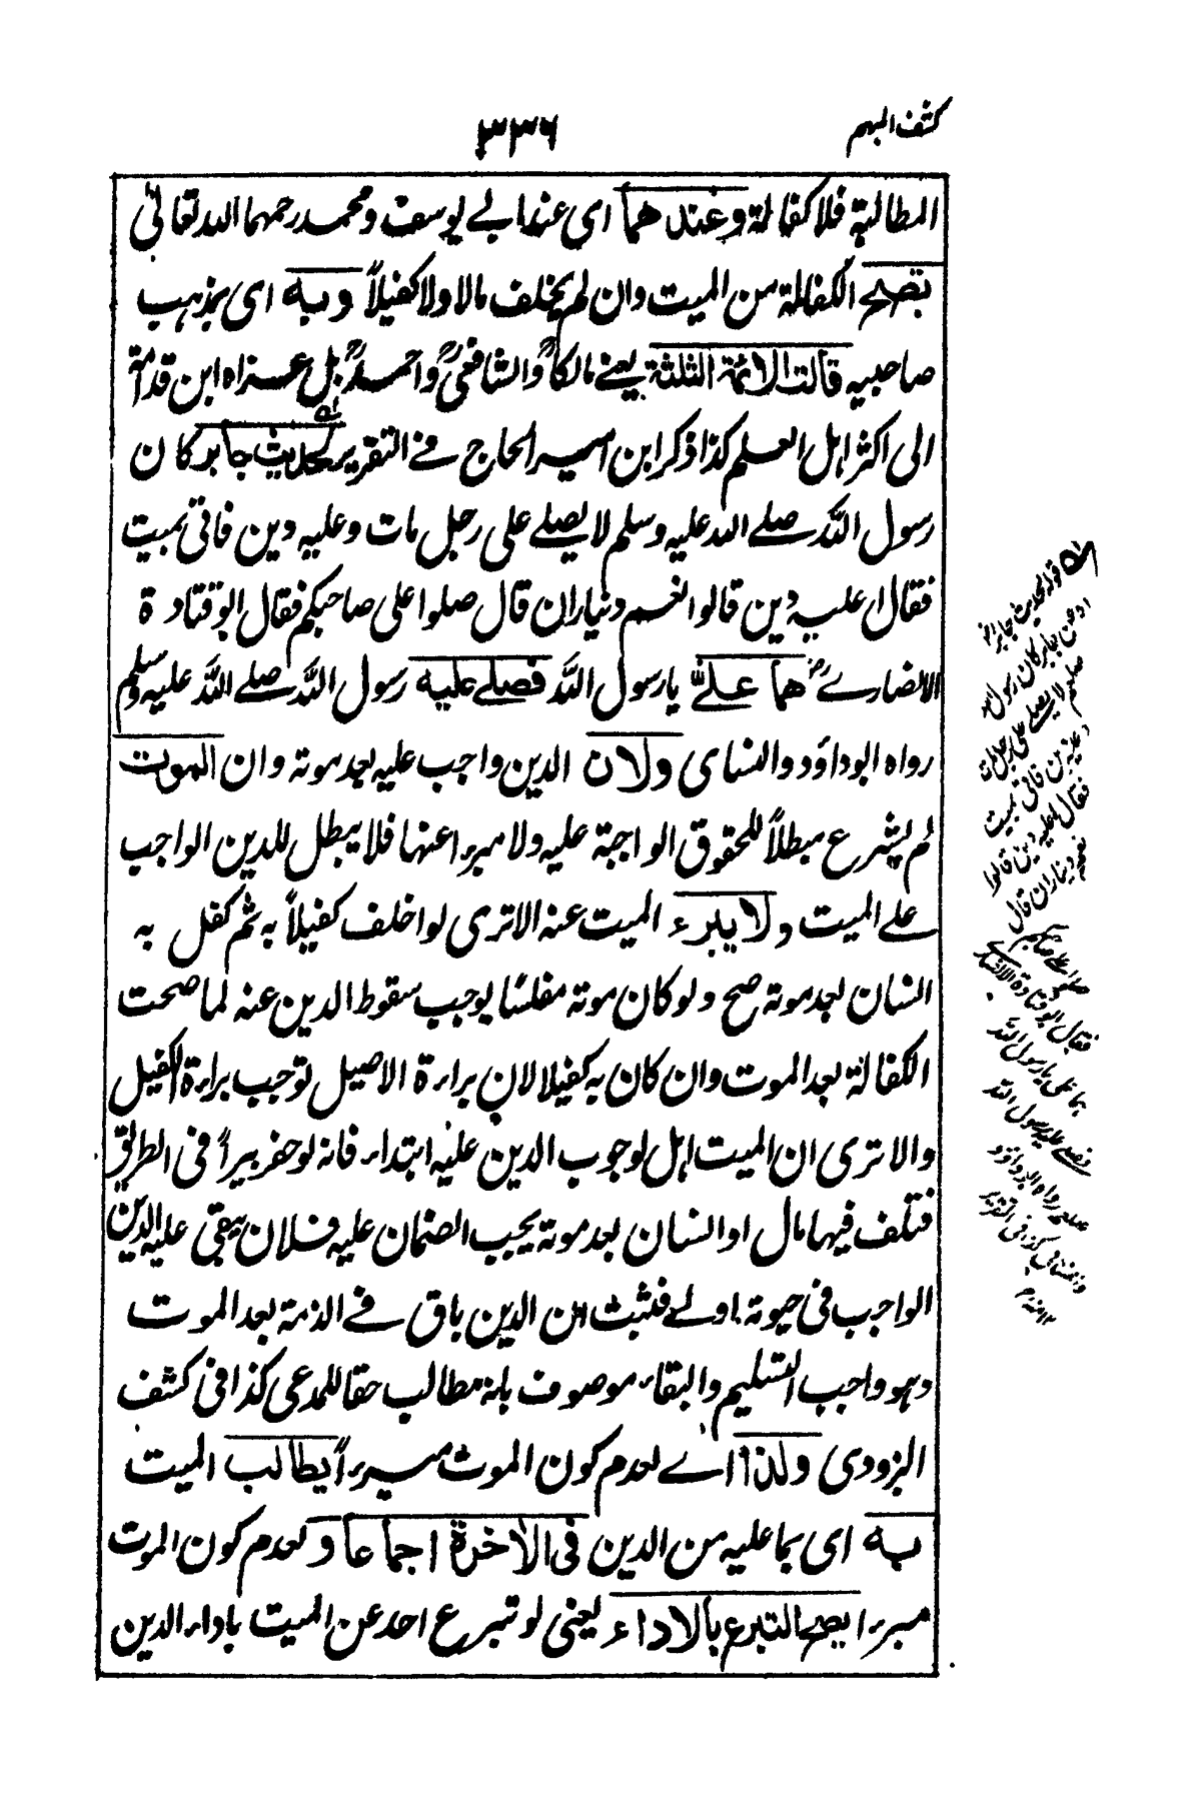 كشف المبهم
٣٣٦
المطالبة فلا كفالة وعندهما اى عند ابے يوسف ومحمد رحمهما الله تعالىٰ
تصح الكفالة من الميت وان لم يخلف مالا ولا كفيلاً وبه اى بمذهب
صاحبيه قالت الائمة الثلثة يعنے مالكاً والشافعى واحمد بل عزاه ابن قدامة
الى اكثر اهل العلم كذا ذكر ابن امير الحاج فے التقرير لحديث جابر كان
رسول الله صلے الله عليه وسلم لا يصلے على رجل مات وعليه دين فاتى بميت
فقال اعليه دين قالوا نعم ديناران قال صلوا على صاحبكم فقال ابو قتادة
الانصارے هما علىّ يا رسول الله فصلے عليه رسول الله صلے الله عليه وسلم
رواه ابو داؤد والنسائى ولان الدين واجب عليه بعد موته وان الموت
لم يشرع مبطلاً للحقوق الواجبة عليه ولا مبرءا عنها فلا يبطل للدين الواجب
علے الميت ولا يبرء الميت عنه الا ترى لو اخلف كفيلاً به ثم كفل به
انسان بعد موته صح ولو كان موته مفلسا يوجب سقوط الدين عنه لما صحت
الكفالة بعد الموت وان كان به كفيلا لان براءة الاصيل توجب براءة الكفيل
والا ترى ان الميت اهل لوجوب الدين عليه ابتداء فانه لو حفر بيراً فى الطريق
فتلف فيها مال او انسان بعد موته يجب الضمان عليه فلان يبقى عليه الدين
الواجب فى حيوته اولے فثبت ان الدين باق فے الذمة بعد الموت
وهو واجب التسليم والبقاء موصوف بانه مطالب حقا للمدعى كذا فى كشف
البزودى ولذا اے لعدم كون الموت مبرءاً يطالب الميت
به اى بما عليه من الدين فى الاٰخرة اجماعا ولعدم كون الموت
مبرءا يصح التبرع بالاداء يعنى لو تبرع احد عن الميت باداء الدين
قوله لحديث جابر الخ
عن جابر كان رسول الله
صلعم لا يصلے على رجل مات
وعليه دين فاتى بميت
فقال اعليه دين قالوا
نعم ديناران قال
صلوا علے صاحبكم
فقال ابو قتادة الانصارے
هما على يا رسول الله
فصلے عليه رسول الله
صلعم رواه ابو داؤد
والنسائى كذا فى التقرير
١٢ منه